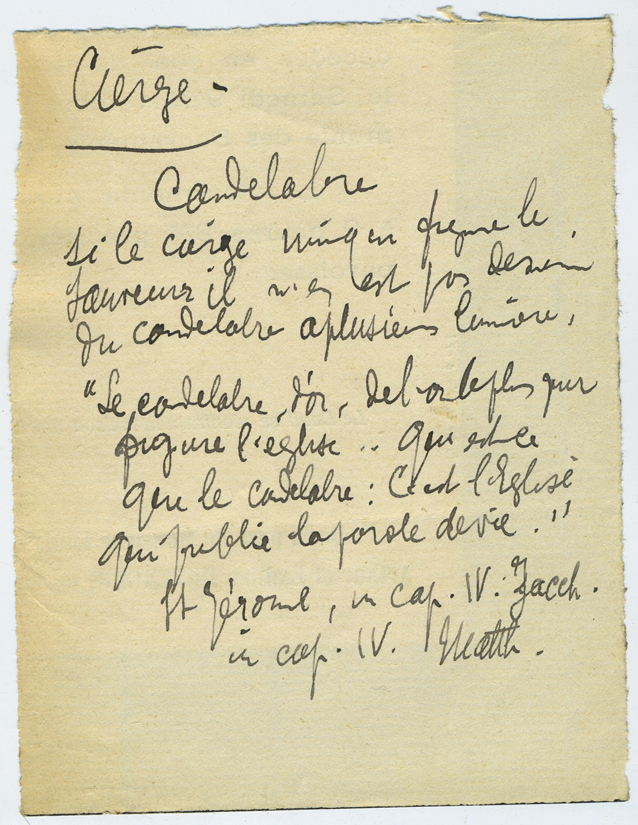 Cièrge -
Candelabre
Si le cièrge unique figure le
Sauveur il n'en est pas de
du candelabre a plusieurs lumière,
"Le candelabre, d'or, de l'or le plus pur
figure l'eglise .. Qu'est ce
que le candelabre : C'est l'Eglise
qui publie la parole de vie."
St Jérome, in cap. IV. Zacch.
in cap. IV. Matth.